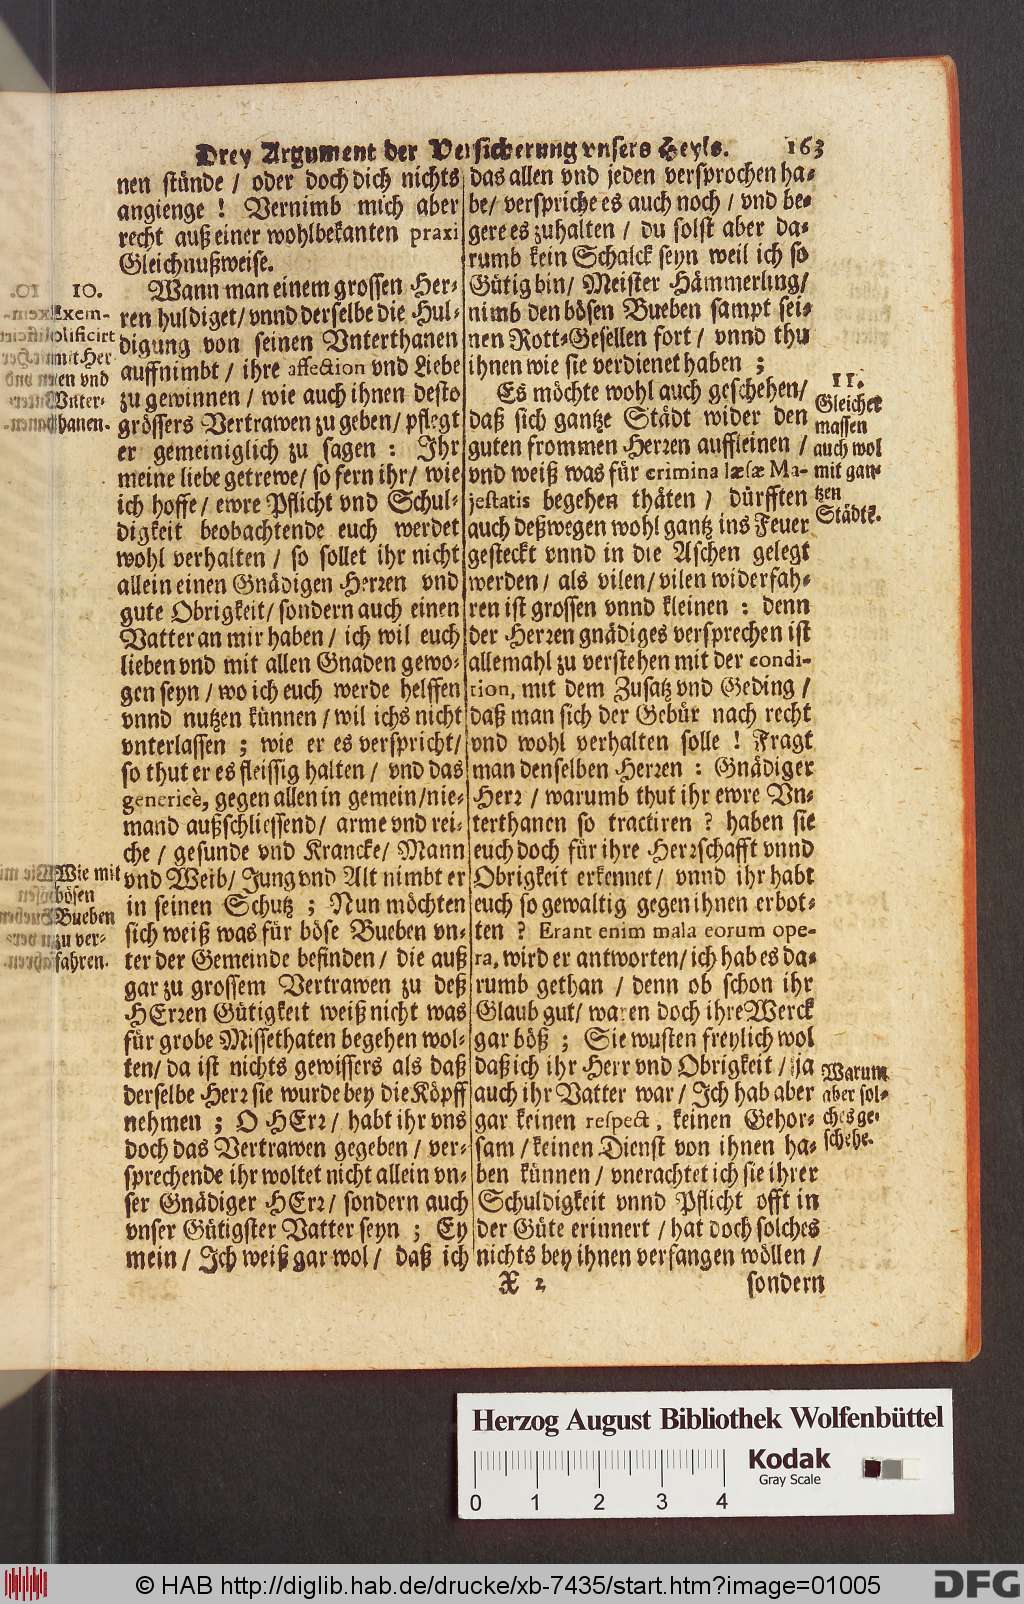 Drey Argument der Versicherung vnsers Heyls. 163
nen stünde / oder doch dich nichts
angienge ! Vernimb mich aber
recht auß einer wohlbekanten praxi
Gleichnußweise.
10.
Exem-
plificirt
mit Her
en vnd
Vnter-
thanen.
Wann man einem grossen Her-
ren huldiget / vnnd derselbe die Hul-
digung von seinen Vnterthanen
auffnimbt / ihre affection vnd Liebe
zu gewinnen / wie auch ihnen desto
grössers Vertrawen zu geben / pflegt
er gemeiniglich zu sagen : Ihr
meine liebe getrewe / so fern ihr / wie
ich hoffe / ewre Pflicht vnd Schul-
digkeit beobachtende euch werdet
wohl verhalten / so sollet ihr nicht
allein einen Gnädigen Herren vnd
gute Obrigkeit / sondern auch einen
Vatter an mir haben / ich wil euch
lieben vnd mit allen Gnaden gewo-
gen seyn / wo ich euch werde helffen
vnnd nutzen künnen / wil ichs nicht
vnterlassen ; wie er es verspricht /
so thut er es fleissig halten / vnd das
genericè, gegen allen in gemein / nie-
mand außschliessend / arme vnd rei-
che / gesunde vnd Krancke / Mann
vnd Weib / Jung vnd Alt nimbt er
in seinen Schutz ; Nun möchten
sich weiß was für böse Bueben vn-
ter der Gemeinde befinden / die auß
gar zu grossem Vertrawen zu deß
HErren Gütigkeit weiß nicht was
für grobe Missethaten begehen wol-
ten / da ist nichts gewissers als daß
derselbe Herr sie wurde bey die Köpff
nehmen ; O HErr / habt ihr vns
doch das Vertrawen gegeben / ver-
sprechende ihr woltet nicht allein vn-
ser Gnädiger HErr / sondern auch
vnser Gütigster Vatter seyn ; Ey
mein / Ich weiß gar wol / daß ich
Wie mit
bösen
Bueben
zu ver-
fahren.
das allen vnd jeden versprochen ha-
be / verspriche es auch noch / vnd be-
gere es zuhalten / du solst aber da-
rumb kein Schalck seyn weil ich so
Gütig bin / Meister Hämmerling /
nimb den bösen Bueben sampt sei-
nen Rott-Gesellen fort / vnnd thu
ihnen wie sie verdienet haben ;
Es möchte wohl auch geschehen /
daß sich gantze Städt wider den
guten frommen Herren auffleinen /
vnd weiß was für crimina læsæ Ma-
jestatis begehen thäten / dürfften
auch deßwegen wohl gantz ins Feuer
gesteckt vnnd in die Aschen gelegt
werden / als vilen / vilen widerfah-
ren ist grossen vnnd kleinen : denn
der Herren gnädiges versprechen ist
allemahl zu verstehen mit der condi-
tion, mit dem Zusatz vnd Geding /
daß man sich der Gebür nach recht
vnd wohl verhalten solle ! Fragt
man denselben Herren : Gnädiger
Herr / warumb thut ihr ewre Vn-
terthanen so tractiren ? haben sie
euch doch für ihre Herrschafft vnnd
Obrigkeit erkennet / vnnd ihr habt
euch so gewaltig gegen ihnen erbot-
ten ? Erant enim mala eorum ope-
ra, wird er antworten / ich hab es da-
rumb gethan / denn ob schon ihr
Glaub gut / waren doch ihre Werck
gar böß ; Sie wusten freylich wol
daß ich ihr Herr vnd Obrigkeit / ja
auch ihr Vatter war / Ich hab aber
gar keinen respect, keinen Gehor-
sam / keinen Dienst von ihnen ha-
ben künnen / vnerachtet ich sie ihrer
Schuldigkeit vnnd Pflicht offt in
der Güte erinnert / hat doch solches
nichts bey ihnen verfangen wöllen /
11.
Gleicher
massen
auch wol
mit gan-
tzen
Städte.
Warum
aber sol-
ches ge-
schehe.
X 2 sondern
Herzog August Bibliothek Wolfenbüttel
Kodak
Gray Scale
0 1 2 3 4
© HAB http://diglib.hab.de/drucke/xb-7435/start.htm?image=01005
DFG